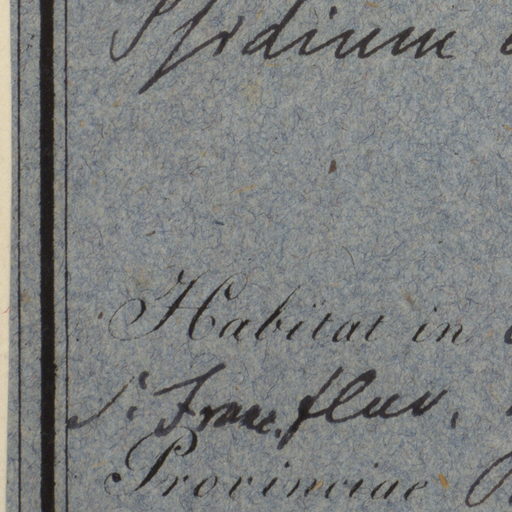 Psidium
Habitat in
S. Franc. fluv.
Provinciae